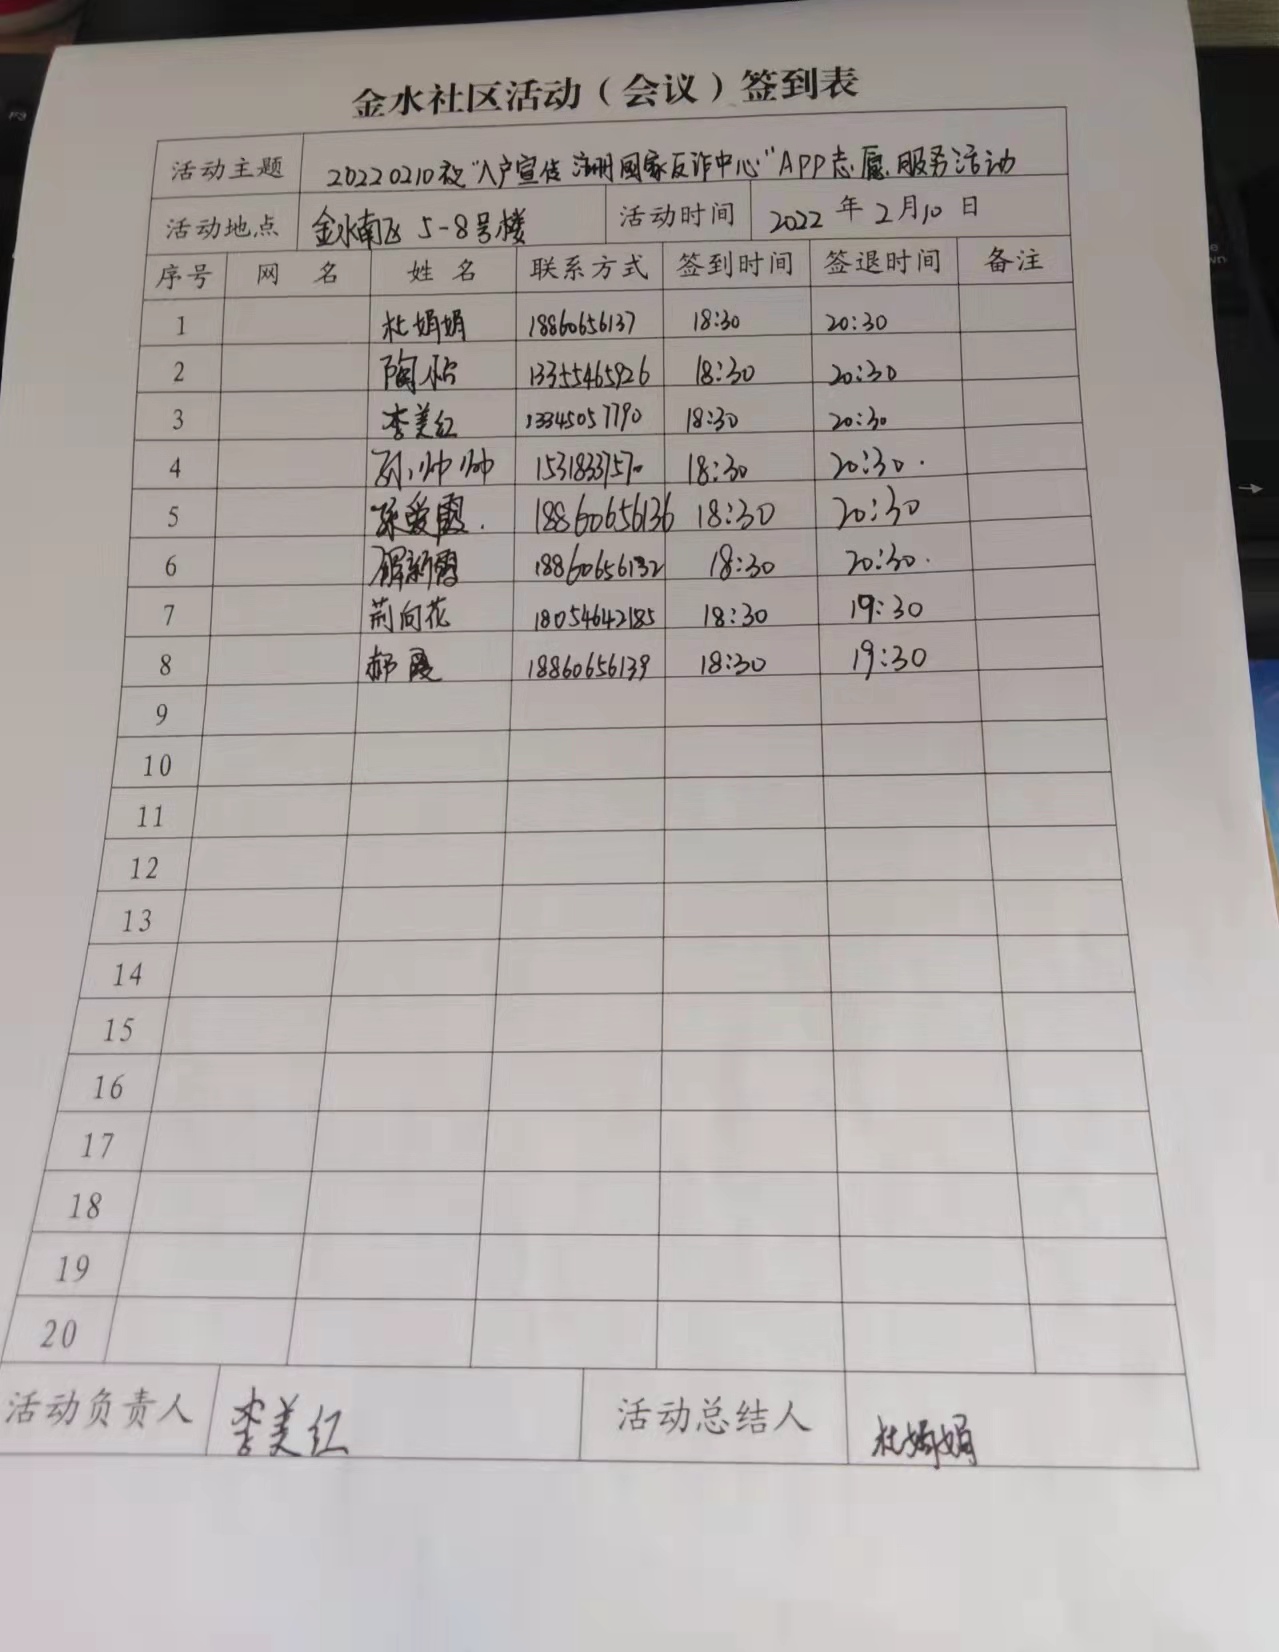 金水社区活动（会议）签到表
活动主题 20220210夜"入户宣传注册国家反诈中心"APP志愿服务活动
活动地点 金水南区 5-8号楼 活动时间 2022 年 2月10 日
序号 网 名 姓 名 联系方式 签到时间 签退时间 备注
1 杜娟娟 18860656137 18:30 20:30
2 陶怡 13355465926 18:30 20:30
3 李美红 13345057790 18:30 20:30
4 孙帅帅 15318337570 18:30 20:30
5 张爱霞 18860656136 18:30 20:30
6 解新霞 18860656132 18:30 20:30
7 荆向花 18054642185 18:30 19:30
8 郝霞 18860656139 18:30 19:30
9
10
11
12
13
14
15
16
17
18
19
20
活动负责人 李美红 活动总结人 杜娟娟